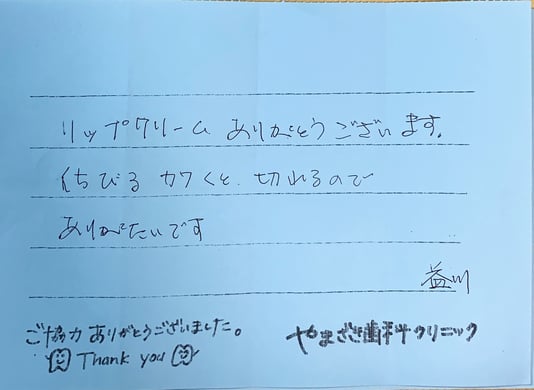 リップクリーム ありがとうございます。
くちびる カワくと、切れるので
ありがたいです
益川
ご協力ありがとうございました。
Thank you
やまざき歯科クリニック